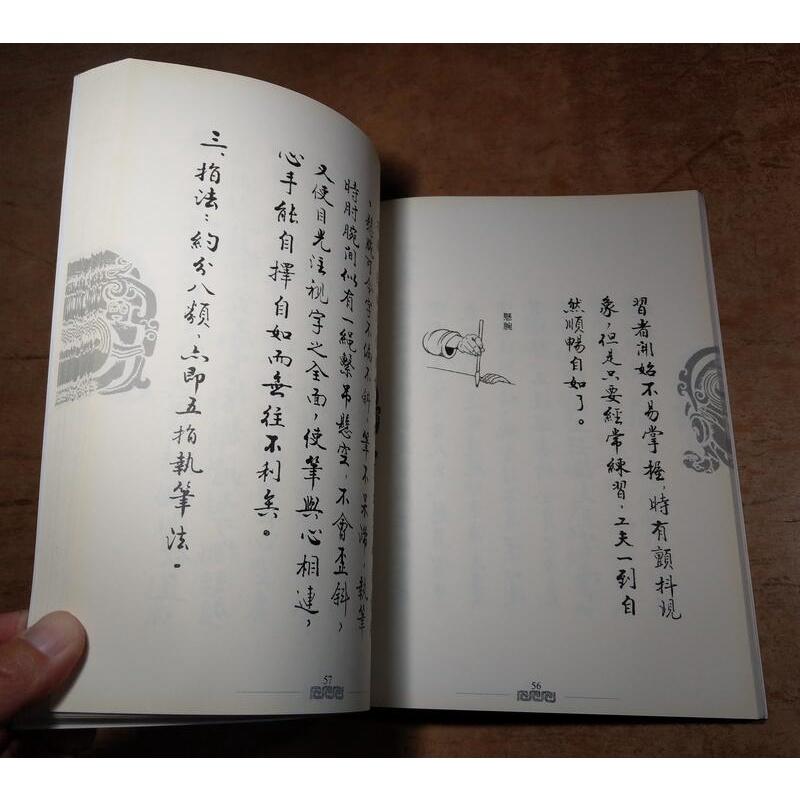 習者開始不易掌握，時有顫抖現
象，但是只要經常練習，工夫一到自
然順暢自如了。
懸腕
56
字不偏不斜筆不呆滯，執筆
時肘腕間似有一繩繫吊懸空，不會歪斜，
又使目光注視字之全面，使筆與心相連，
心手能自擇自如而無往不利矣。
三、指法：約分八類，亦即五指執筆法。
57